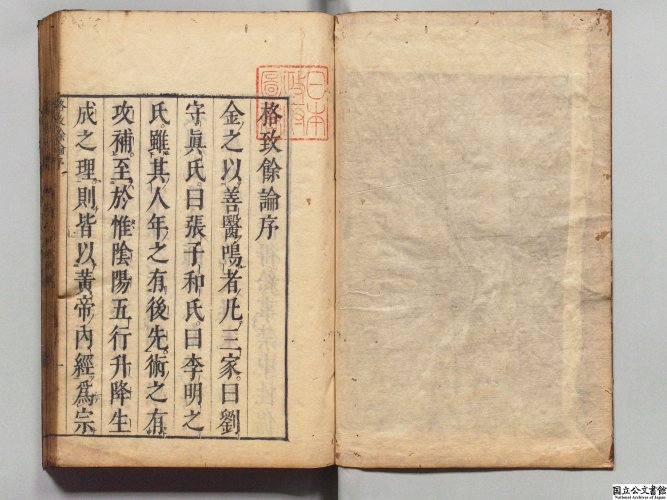 格致餘論序
金之以善醫鳴者凡三家曰劉
守眞氏曰張子和氏曰李明之
氏雖其人年之有後先術之有
攻補至於惟陰陽五行升降生
成之理則皆以黃帝內經爲宗
格致餘論序 一
日本
政府
圖書
国立公文書館
National Archives of Japan